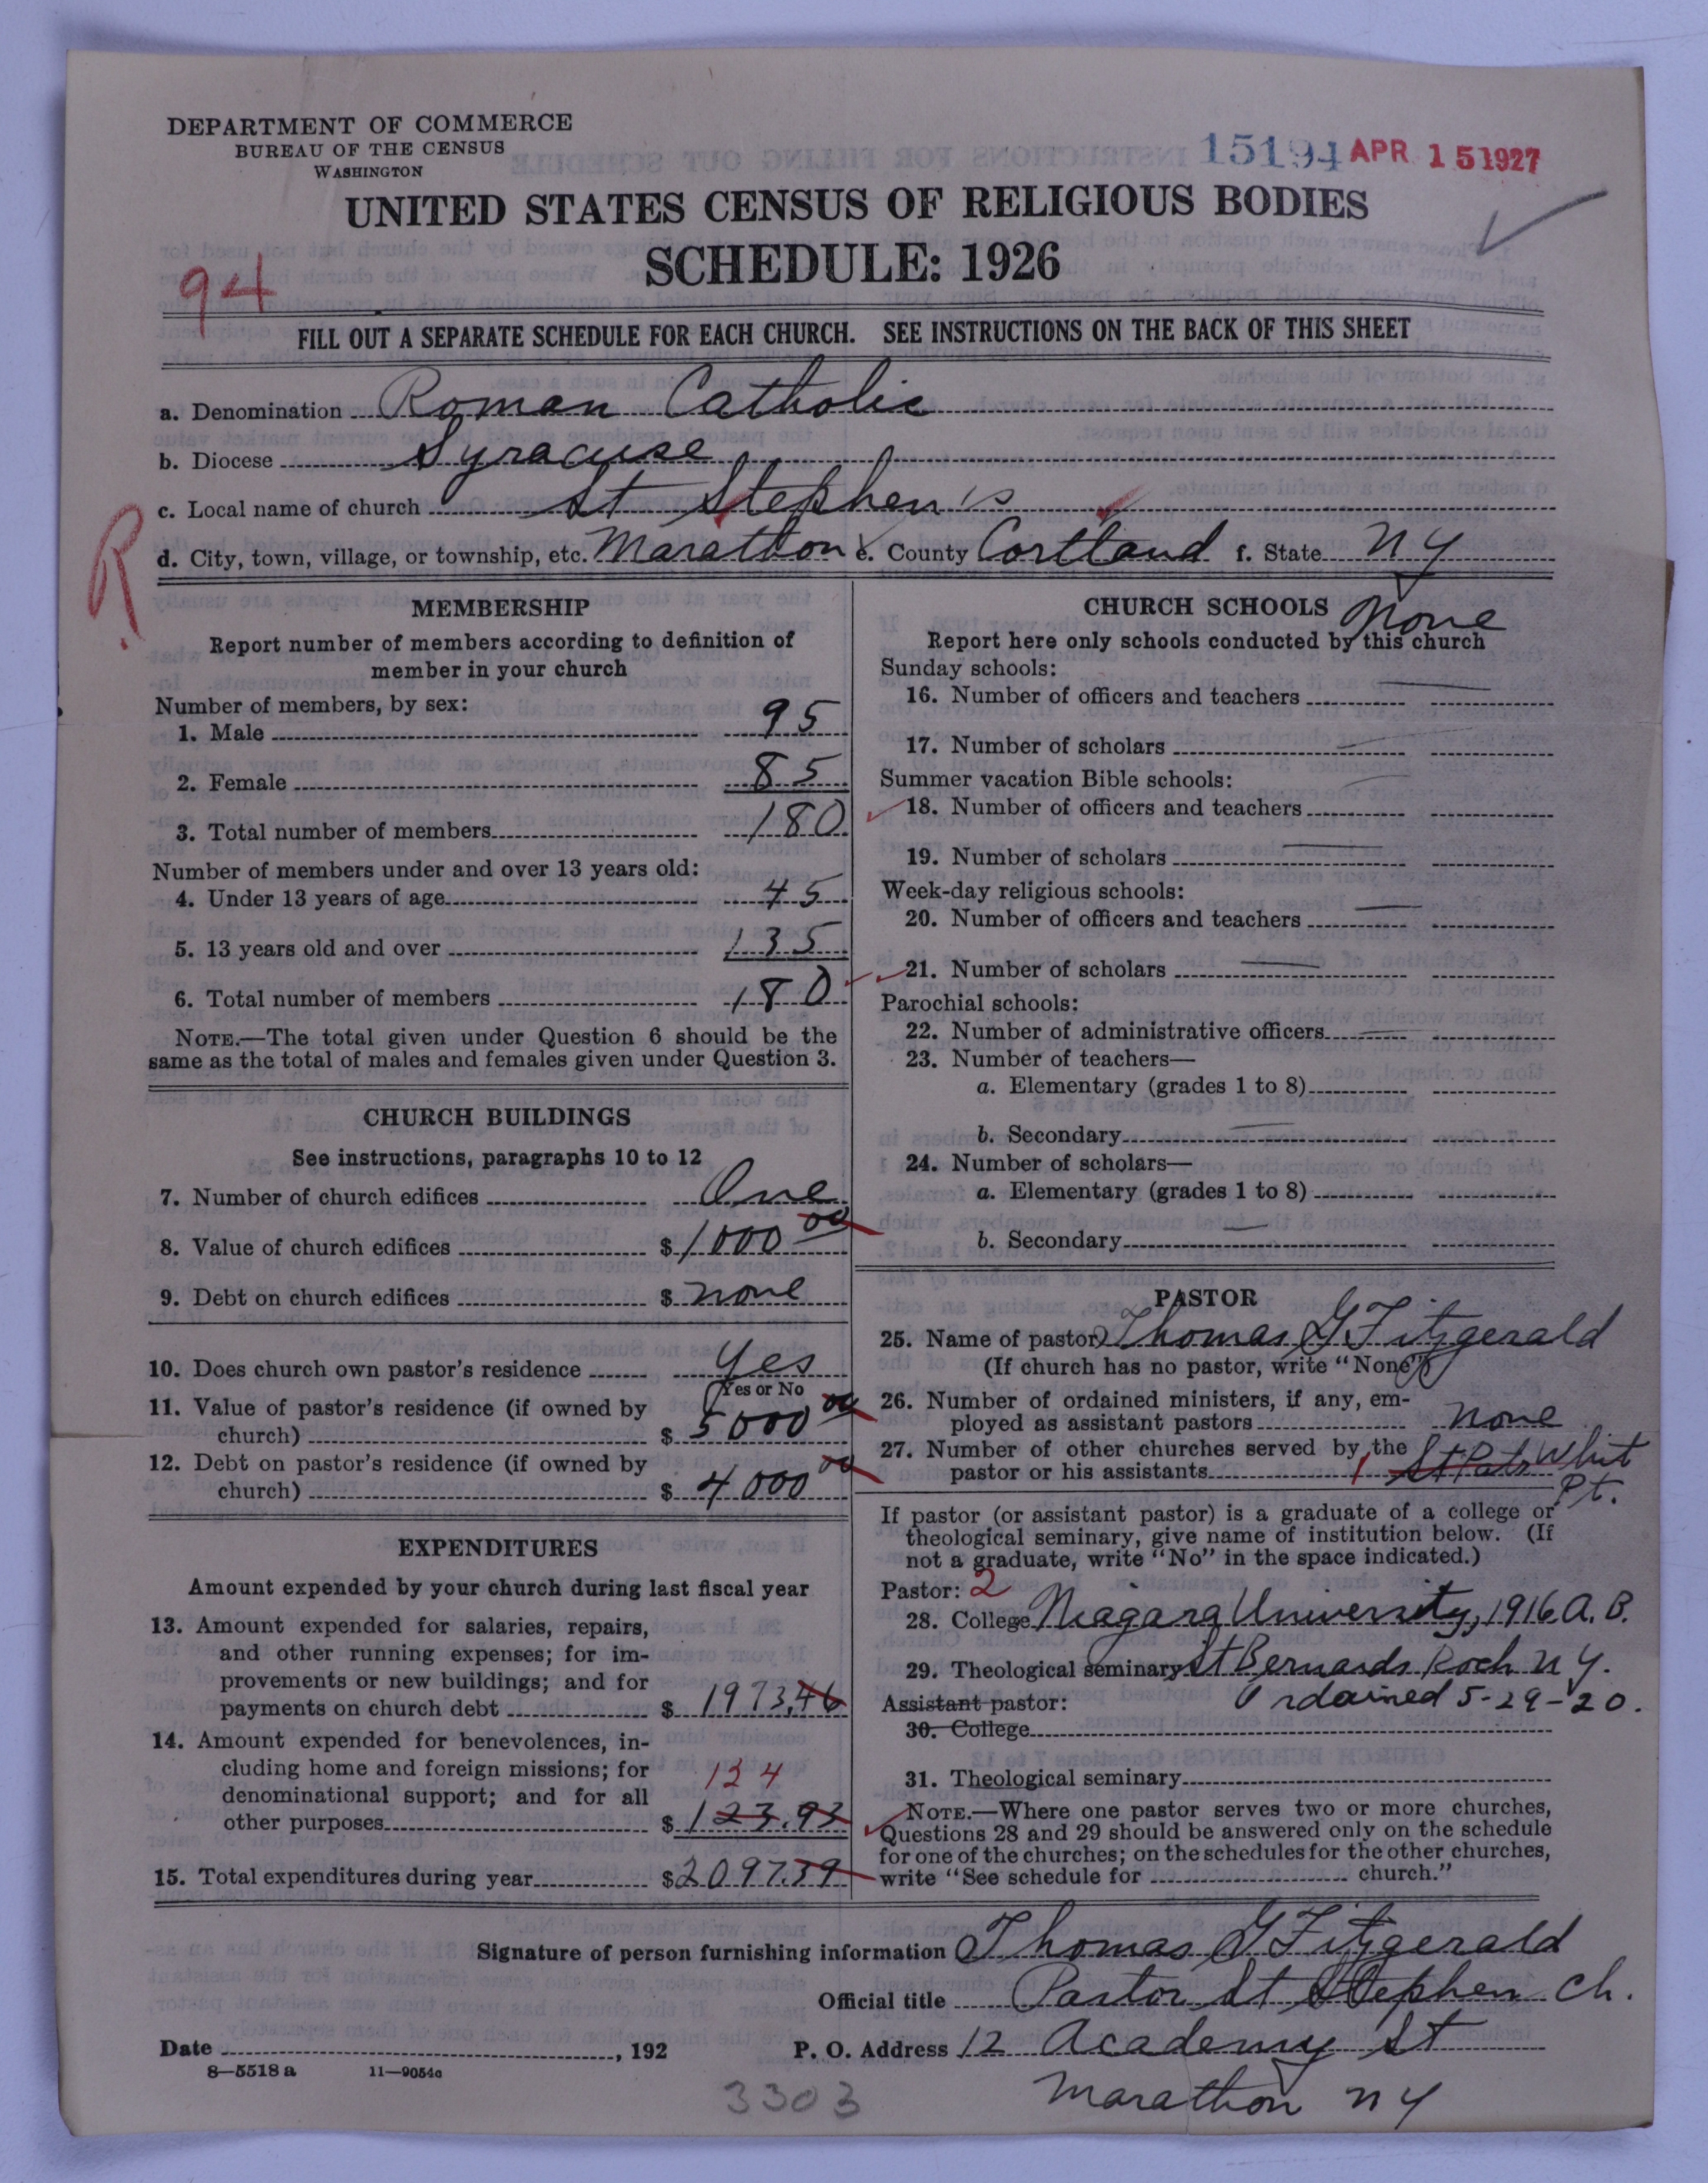 DEPARTMENT OF COMMERCE
BUREAU OF THE CENSUS
WASHINGTON
15194 APR 15 1927
UNITED STATES CENSUS OF RELIGIOUS BODIES
SCHEDULE: 1926
94
FILL OUT A SEPARATE SCHEDULE FOR EACH CHURCH. SEE INSTRUCTIONS ON THE BACK OF THIS SHEET
a. Denomination Roman Catholic
b. Diocese Syracuse
c. Local name of church St Stephen's
R
d. City, town, village, or township, etc. Marathon e. County Cortland f. State N Y
MEMBERSHIP
Report number of members according to definition of
member in your church
Number of members, by sex:
1. Male 95
2. Female 85
3. Total number of members 180
Number of members under and over 13 years old:
4. Under 13 years of age 45
5. 13 years old and over 135
6. Total number of members 180
NOTE.—The total given under Question 6 should be the
same as the total of males and females given under Question 3.
CHURCH BUILDINGS
See instructions, paragraphs 10 to 12
7. Number of church edifices One
8. Value of church edifices $ 1000 00
9. Debt on church edifices $ none
10. Does church own pastor's residence Yes
Yes or No
11. Value of pastor's residence (if owned by
church) $ 5000 00
12. Debt on pastor's residence (if owned by
church) $ 4000 00
EXPENDITURES
Amount expended by your church during last fiscal year
13. Amount expended for salaries, repairs,
and other running expenses; for im-
provements or new buildings; and for
payments on church debt $ 1973.46
14. Amount expended for benevolences, in-
cluding home and foreign missions; for
denominational support; and for all
124
other purposes $ 123.93
15. Total expenditures during year $ 2097.39
CHURCH SCHOOLS None
Report here only schools conducted by this church
Sunday schools:
16. Number of officers and teachers
17. Number of scholars
Summer vacation Bible schools:
18. Number of officers and teachers
19. Number of scholars
Week-day religious schools:
20. Number of officers and teachers
21. Number of scholars
Parochial schools:
22. Number of administrative officers
23. Number of teachers—
a. Elementary (grades 1 to 8)
b. Secondary
24. Number of scholars—
a. Elementary (grades 1 to 8)
b. Secondary
PASTOR
25. Name of pastor Thomas G Fitzgerald
(If church has no pastor, write "None")
26. Number of ordained ministers, if any, em-
ployed as assistant pastors none
27. Number of other churches served by the
pastor or his assistants 1 St Pats Whit
Pt.
If pastor (or assistant pastor) is a graduate of a college or
theological seminary, give name of institution below. (If
not a graduate, write "No" in the space indicated.)
Pastor: 2
28. College Niagara University, 1916 A. B.
29. Theological seminary St Bernards Roch N Y.
Ordained 5-29-20.
Assistant pastor:
30. College
31. Theological seminary
NOTE.—Where one pastor serves two or more churches,
Questions 28 and 29 should be answered only on the schedule
for one of the churches; on the schedules for the other churches,
write "See schedule for church."
Signature of person furnishing information Thomas G Fitzgerald
Official title Pastor St Stephen Ch.
Date , 192 P. O. Address 12 Academy St
8—5518 a 11—9054a
3303 Marathon N Y